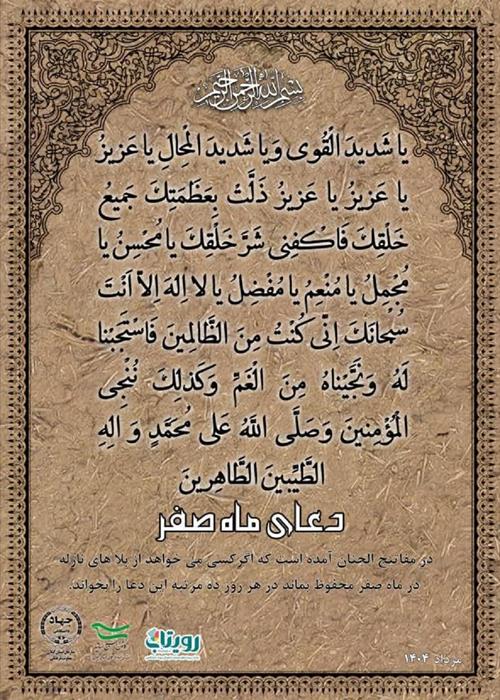 بِسْمِ اللهِ الرَّحْمنِ الرَّحيمِ
يا شَديدَ الْقُوى وَيا شَديدَ الْمِحالِ يا عَزيزُ
يا عَزيزُ يا عَزيزُ ذَلَّتْ بِعَظَمَتِكَ جَميعُ
خَلْقِكَ فَاكْفِنى شَرَّ خَلْقِكَ يا مُحْسِنُ يا
مُجْمِلُ يا مُنْعِمُ يا مُفْضِلُ يا لا اِلهَ اِلاّ اَنْتَ
سُبْحانَكَ اِنّى كُنْتُ مِنَ الظّالِمينَ فَاسْتَجَبْنا
لَهُ وَنَجَّيْناهُ مِنَ الْغَمِّ وَكَذلِكَ نُنْجِى
الْمُؤْمِنينَ وَصَلَّى اللهُ عَلى مُحَمَّدٍ وَ الِهِ
الطَّيِّبينَ الطَّاهِرينَ
دعای ماه صفر
در مفاتیح الجنان آمده است که اگر کسی می خواهد از بلا های نازله
در ماه صفر محفوظ بماند در هر روز ده مرتبه این دعا را بخواند.
جهاد
رویتاب
مرداد ۱۴۰۴